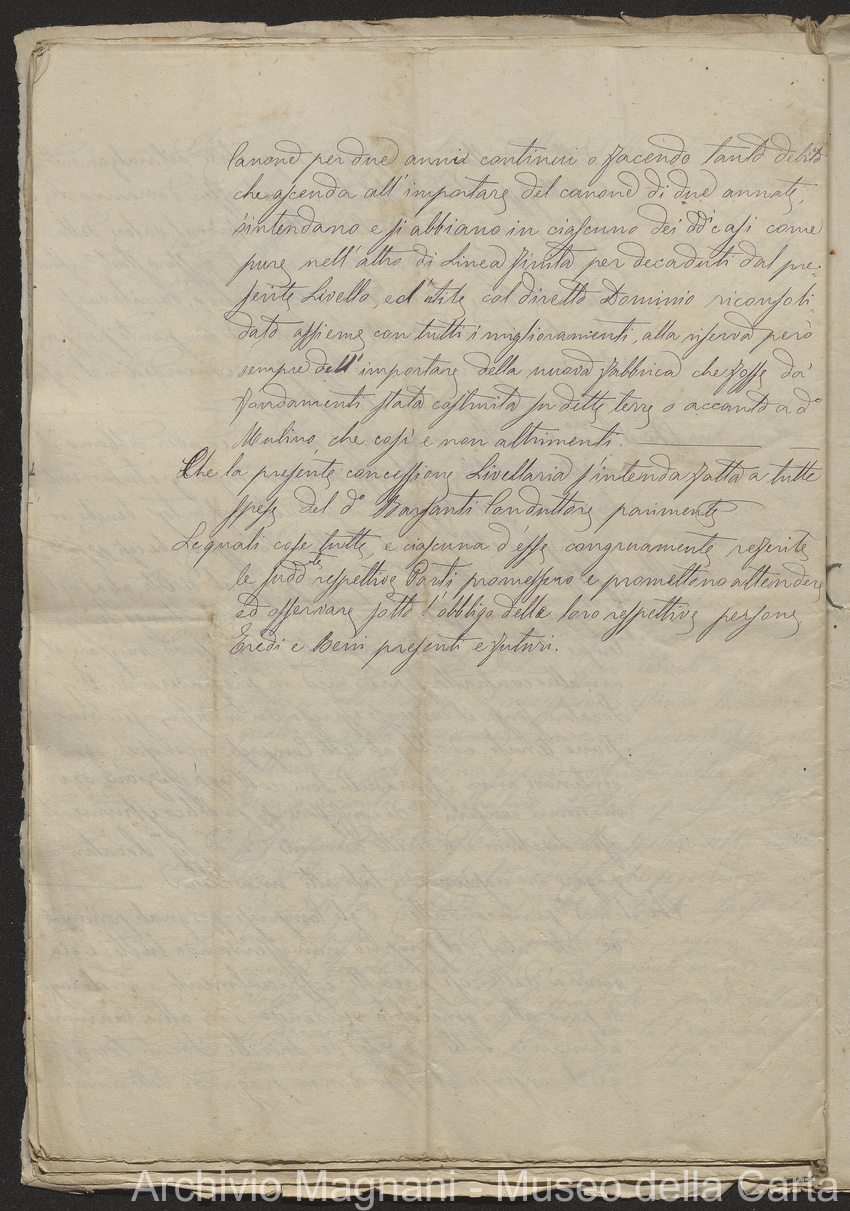 Canone per due anni continui o facendo tanto debito
che ascenda all'importare del canone di due annate,
s'intendano e si abbiano in ciascuno dei dd.i casi come
pure nell'altro di Linea finita per decaduti dal pre=
sente Livello, ed l'utile col diretto Dominio riconsoli
dato assieme con tutti i miglioramenti, alla riserva però
sempre dell'importare della nuova fabbrica che fosse da'
fondamenti stata costruita su dette terre o accanto a d.o
Mulino, che così e non altrimenti.
Che la presente concessione Livellaria s'intenda fatta a tutte
spese del d.o Barsanti Conduttore parimente
Le quali cose tutte, e ciascuna d'esse congruamente referite
le sudd.te respettive Parti promessero e promettono attendere
ed osservare sotto l'obbligo delle loro respettive persone
Eredi e Beni presenti e futuri.
Archivio Magnani - Museo della Carta